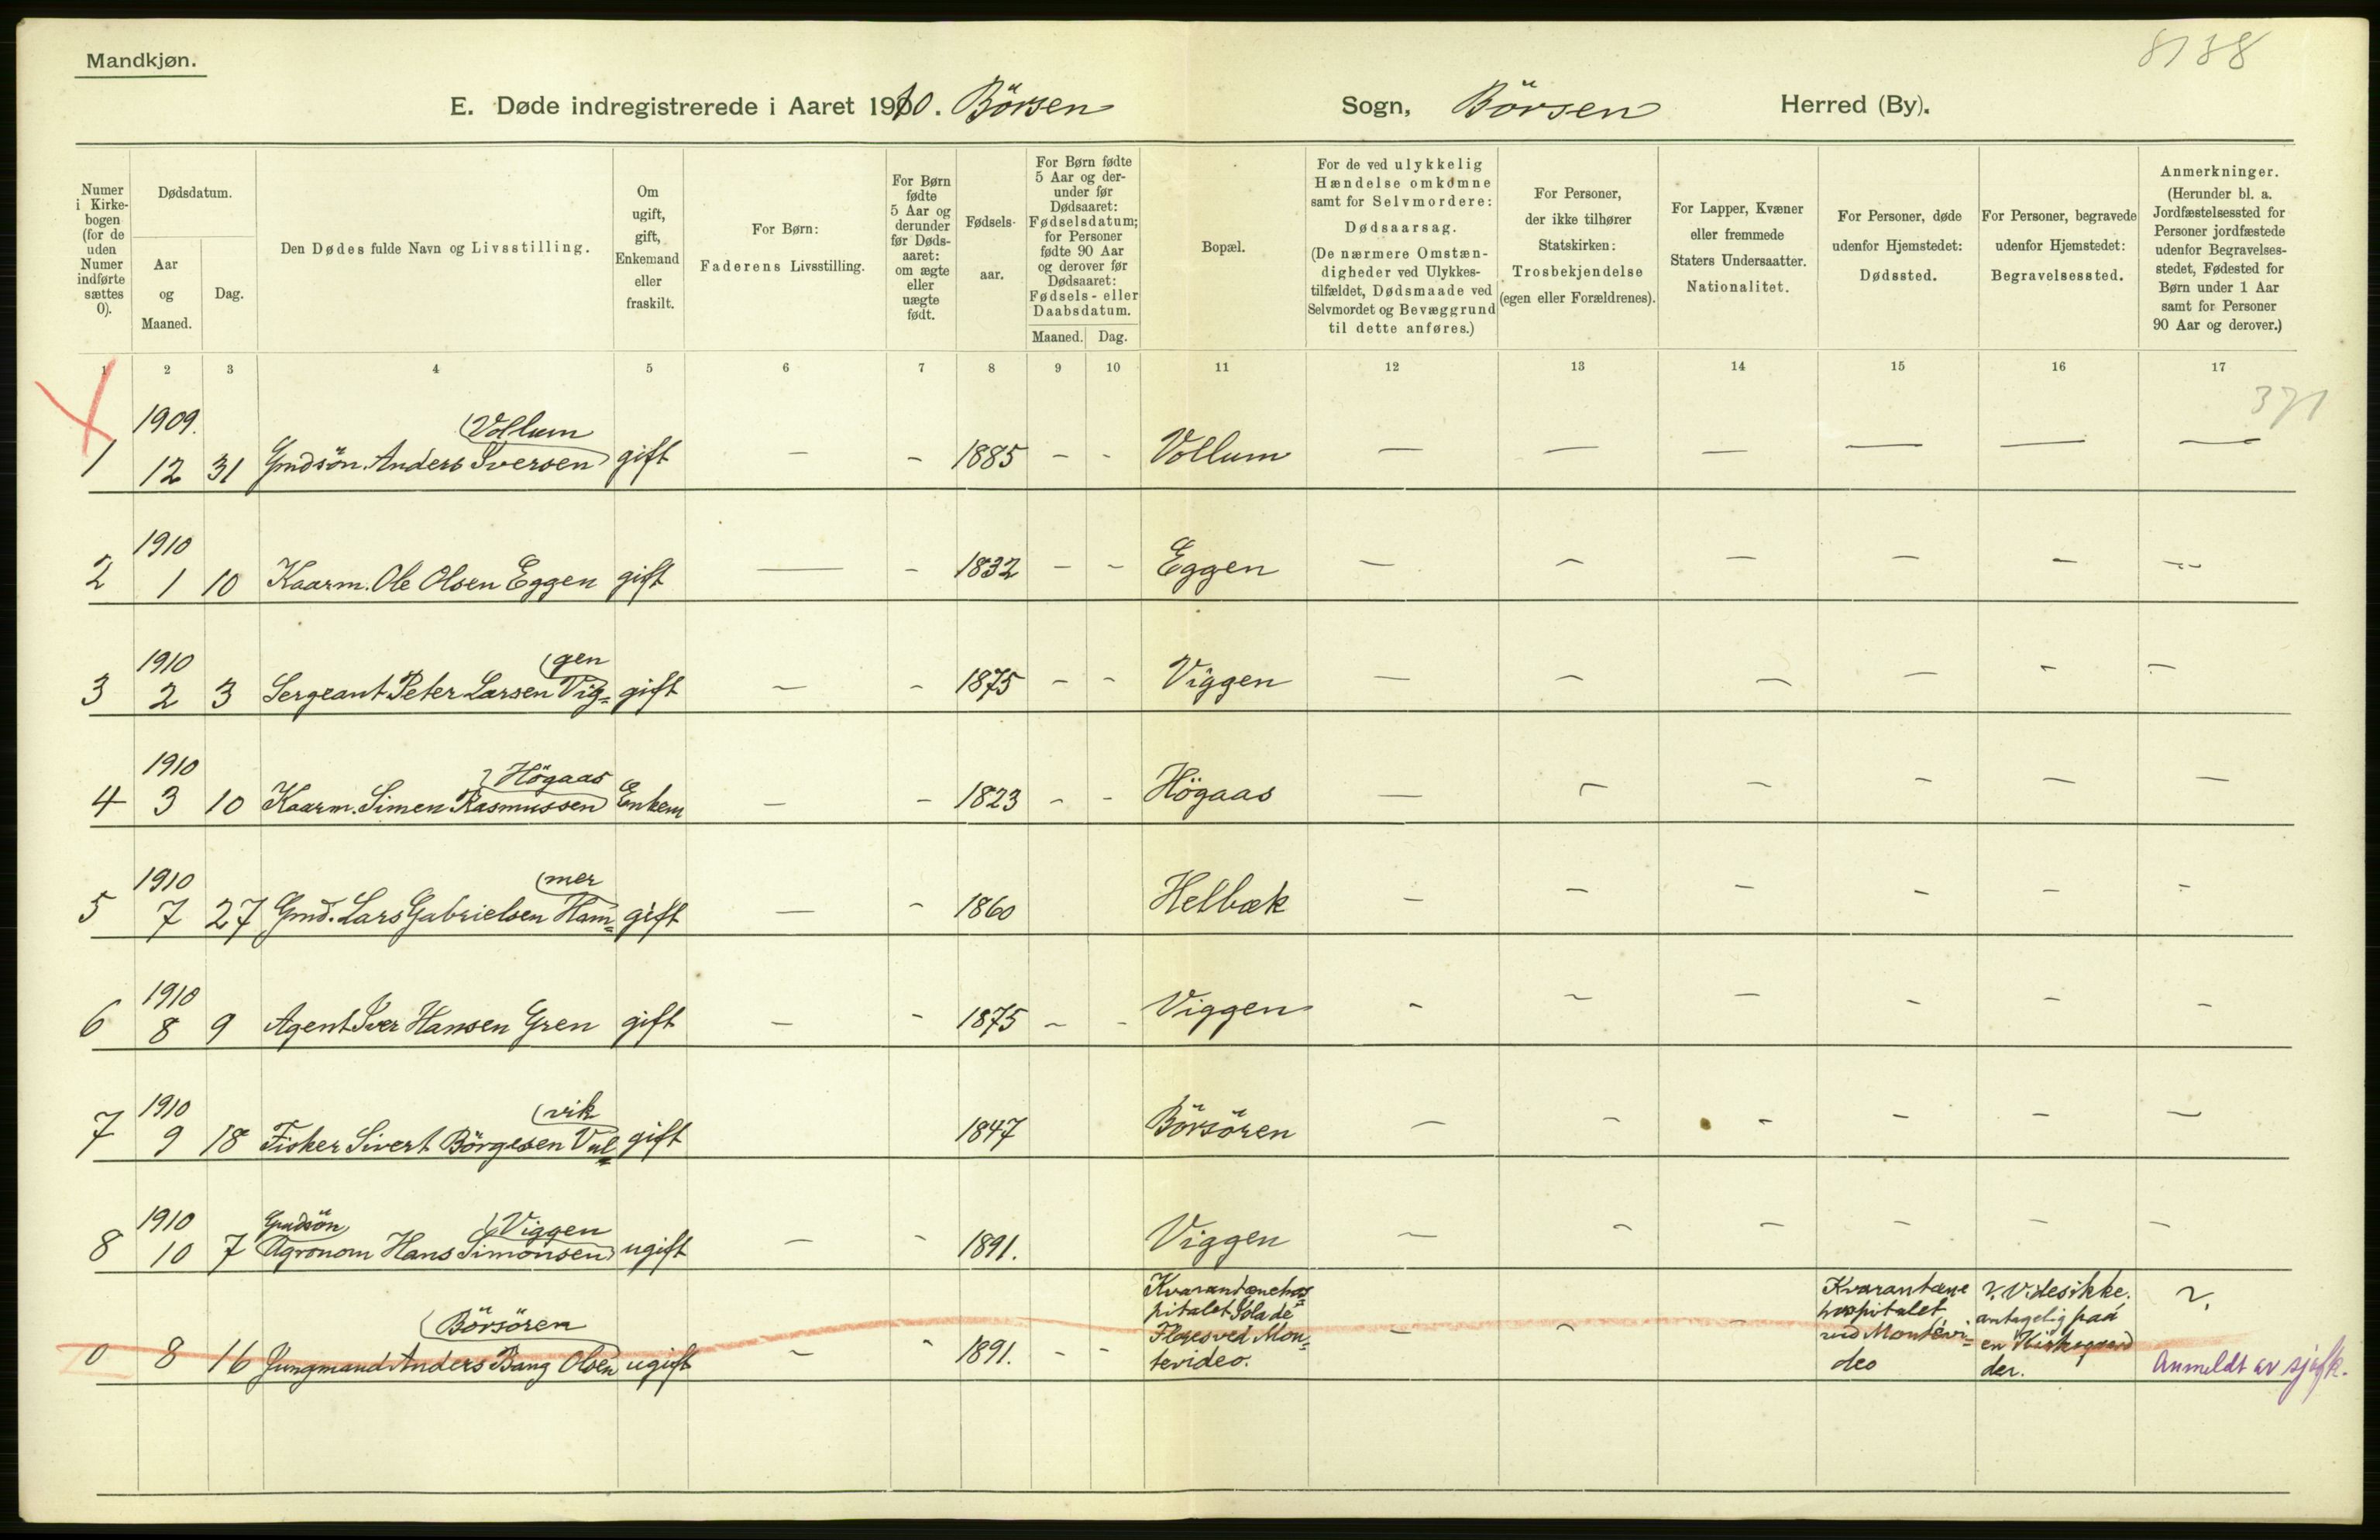 Mandkjøn.
8138
E. Døde indregistrerede i Aaret 1910. Börsen Sogn, Börsen Herred (By).
Numer i Kirkebogen (for de uden Numer indførte sættes 0).
Dødsdatum.
Aar og Maaned.
Dag.
Den Dødes fulde Navn og Livsstilling.
Om ugift, gift, Enkemand eller fraskilt.
For Børn: Faderens Livsstilling.
For Børn fødte 5 Aar og derunder før Dødsaaret: om ægte eller uægte født.
Fødselsaar.
For Børn fødte 5 Aar og derunder før Dødsaaret: Fødselsdatum; for Personer fødte 90 Aar og derover før Dødsaaret: Fødsels- eller Daabsdatum.
Maaned. Dag.
Bopæl.
For de ved ulykkelig Hændelse omkomne samt for Selvmordere: Dødsaarsag. (De nærmere Omstændigheder ved Ulykkestilfældet, Dødsmaade ved Selvmordet og Bevæggrund til dette anføres.)
For Personer, der ikke tilhører Statskirken: Trosbekjendelse (egen eller Forældrenes).
For Lapper, Kvæner eller fremmede Staters Undersaatter. Nationalitet.
For Personer, døde udenfor Hjemstedet: Dødssted.
For Personer, begravede udenfor Hjemstedet: Begravelsessted.
Anmerkninger. (Herunder bl. a. Jordfæstelsessted for Personer jordfæstede udenfor Begravelsesstedet, Fødested for Børn under 1 Aar samt for Personer 90 Aar og derover.)
1 2 3 4 5 6 7 8 9 10 11 12 13 14 15 16 17
371
1909. Vollum
1 12 31 Gmdsön. Anders Iversen gift – – 1885 – – Vollum – – – – – –
1910
2 1 10 Kaarm. Ole Olsen Eggen gift – – 1832 – – Eggen – – – – – –
1910 gen
3 2 3 Sergeant Peter Larsen Vig= gift – – 1875 – – Viggen – – – – – –
1910 Högaas
4 3 10 Kaarm. Simen Rasmussen Enkem – – 1823 – – Högaas – – – – – –
1910 mer
5 7 27 Gmd. Lars Gabrielsen Ham= gift – – 1860 Helbæk – – – – – –
1910
6 8 9 Agent Iver Hansen Gren gift – – 1875 – – Viggen – – – – – –
1910 vik
7 9 18 Fisker Sivert Börgesen Vul= gift 1847 Börsören – – – – – –
1910 Gmdsön Viggen
8 10 7 Agronom Hans Simonsen ugift – – 1891. Viggen – – – – – –
Börsören
0 8 16 Jungmand Anders Bang Olsen ugift – – 1891. – –
Kvarantænehos=
pitalet Isla de
Flores ved Mon=
tevideo.
– – –
Kvarantæne
hospitalet
ved Montevi=
deo
?. Vides ikke.
antagelig paa
en Kirkegaard
der.
?.
Anmeldt av sjøfk.